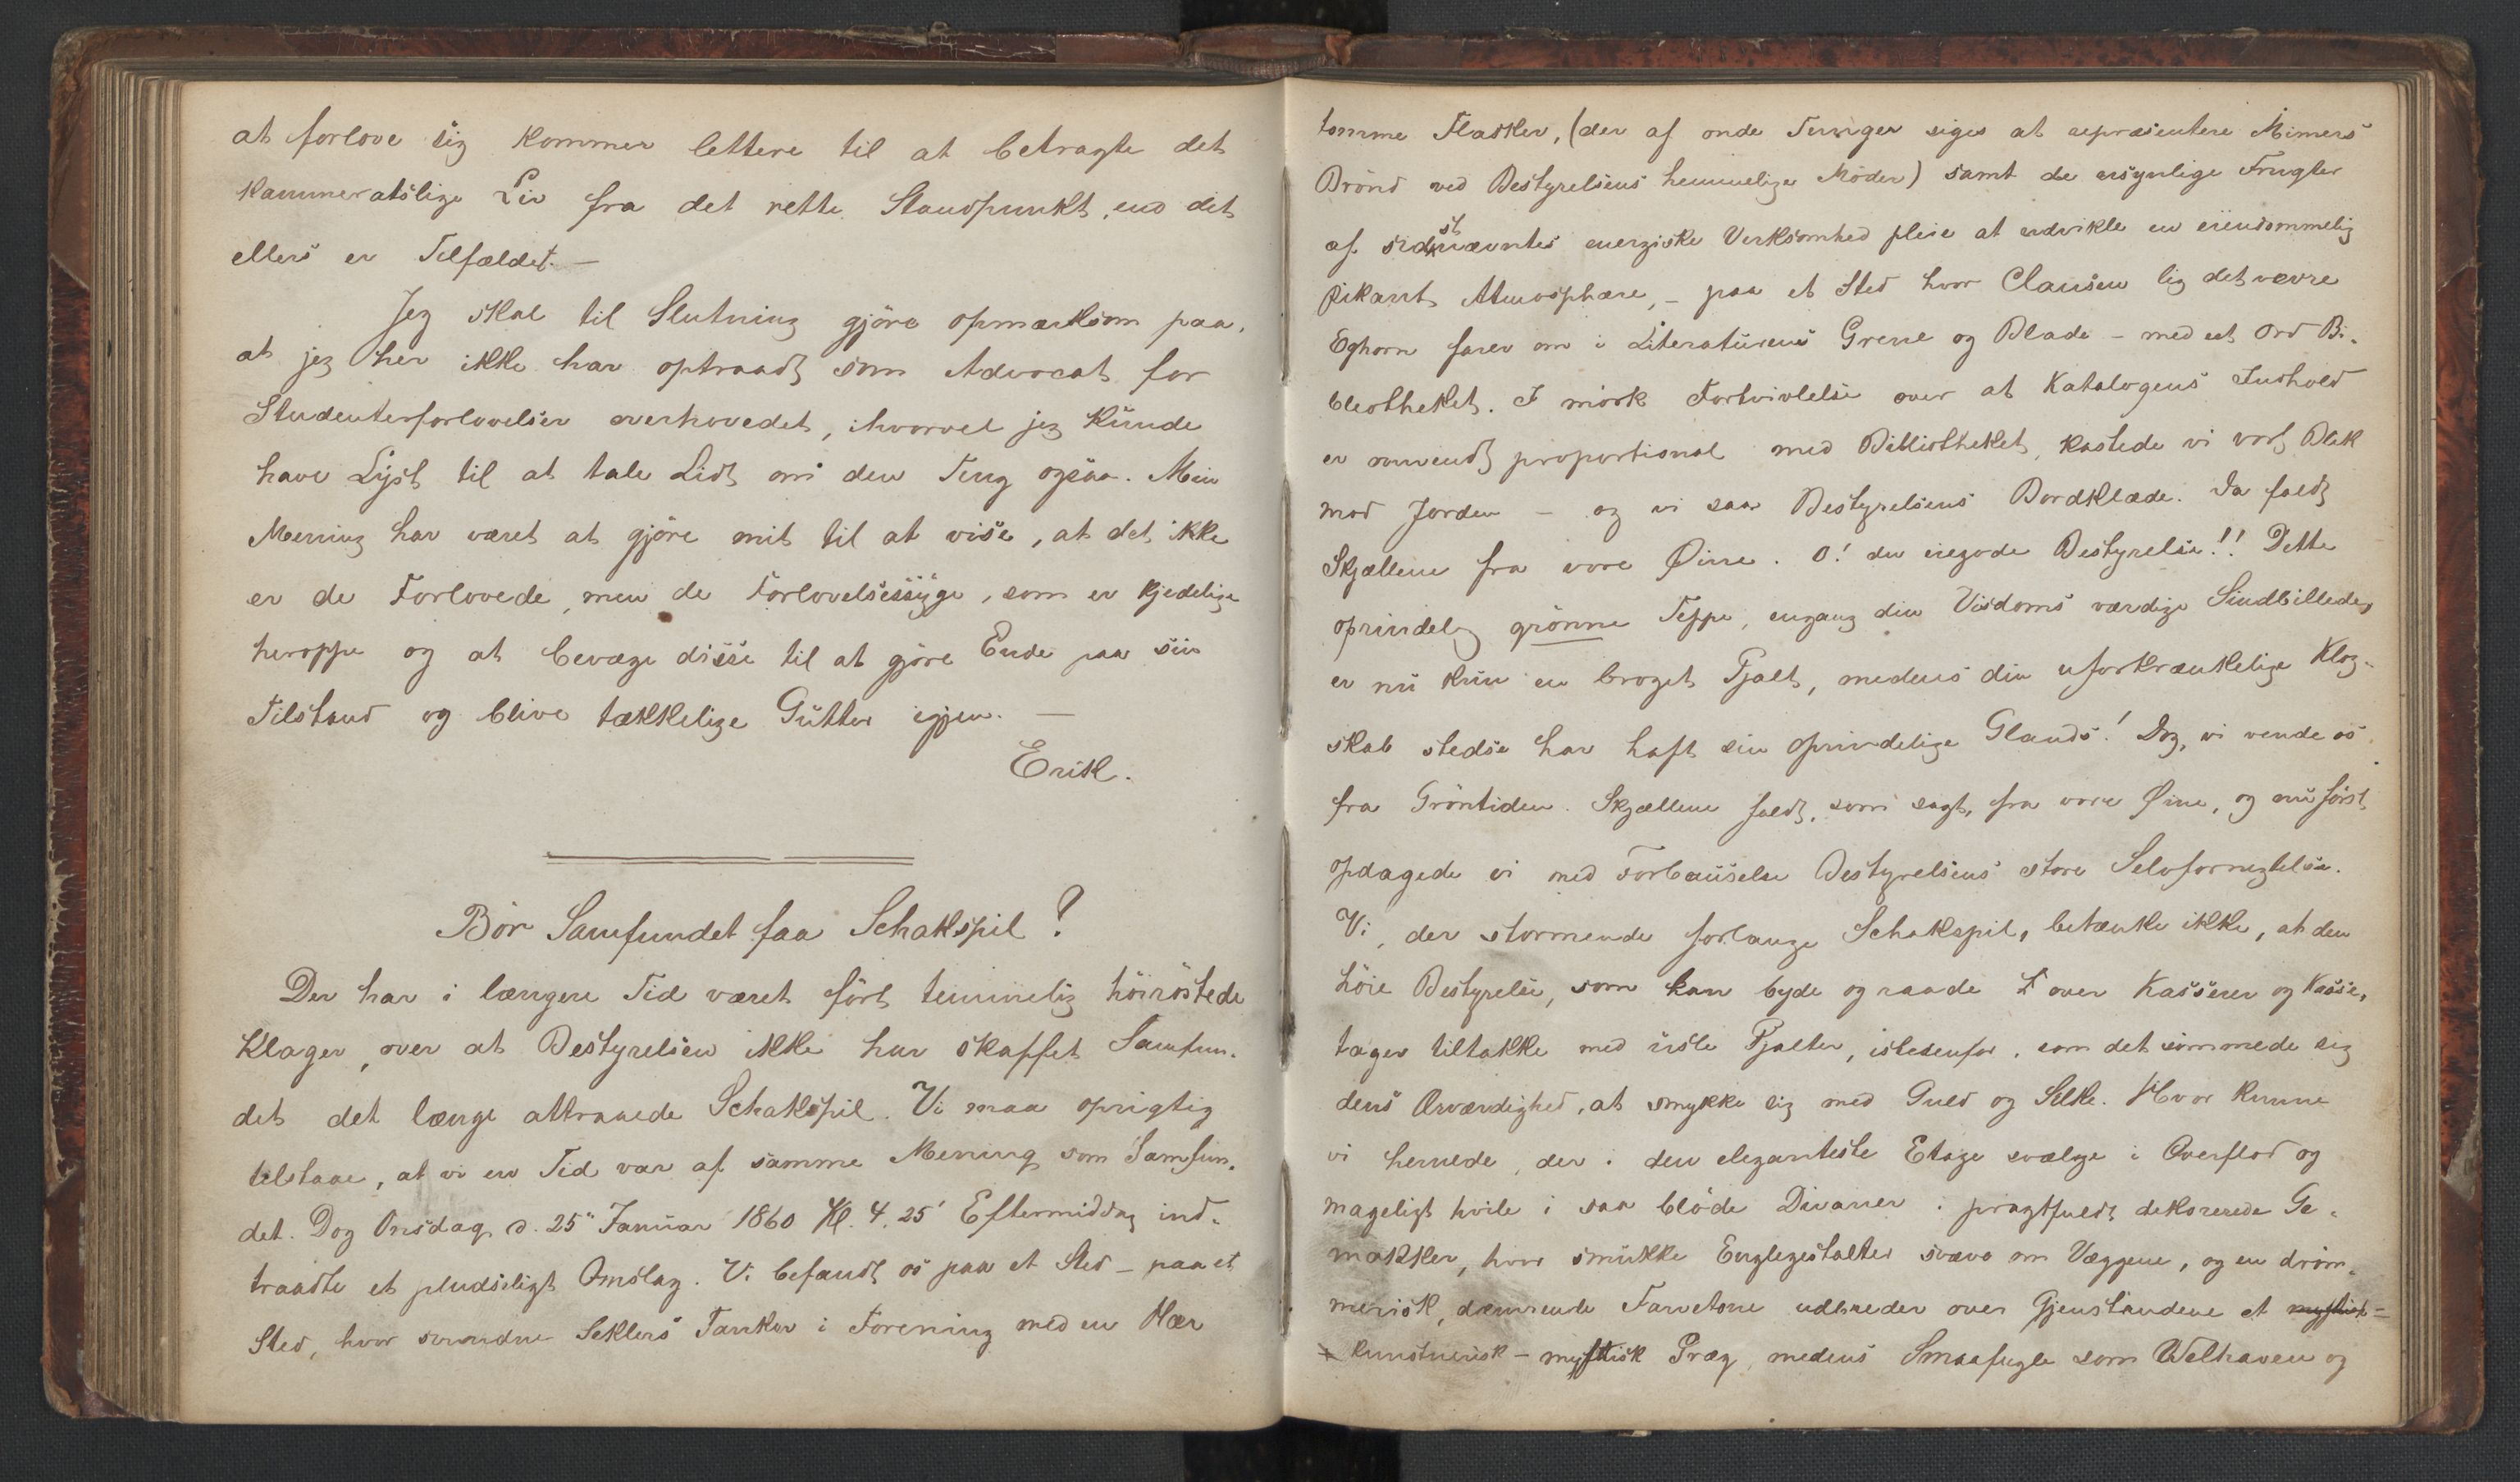 at forlove sig kommer lettere til at betragte det
kammeratslige Liv fra det rette Standpunkt, end det
ellers er Tilfældet. —
Jeg skal til Slutning gjöre opmærksom paa,
at jeg her ikke har optraadt som Advocat for
Studenterforlovelser overhovedet, ihvorvel jeg kunde
have Lyst til at tale Lidt om den Ting ogsaa. Min
Mening har været at gjöre mit til at vise, at det ikke
er de Forlovede, men de Forlovelsessyge, som er kjedelige
heroppe og at bevæge disse til at gjöre Ende paa sin
Tilstand og blive tækkelige Gutter igjen. —
Erik.
Bör Samfundet faa Schakspil?
Der har i længere Tid været fört temmelig höiröstede
Klager, over at Bestyrelsen ikke har skaffet Samfun-
det det længe attraaede Schakspil. Vi maa oprigtig
tilstaae, at vi en Tid var af samme Mening som Samfun-
det. Dog Onsdag d. 25" Januar 1860 Kl. 4. 25' Eftermiddag ind-
traadte et pludseligt Omslag. Vi befandt os paa et Sted – paa et
Sted, hvor svundne Seklers Tanker i Forening med en Hær
tomme Flasker, (der af onde Tunger siges at repræsentere Mimers
Brönd ved Bestyrelsens hemmelige Möder) samt de usynlige Frugter
af sidstnævntes energiske Verksomhed pleie at udvikle en eiendommelig
pikant Atmosphære, – paa et Sted hvor Clausen lig det vævre
Eghorn farer om i Literaturens Grene og Blade – med et Ord Bi-
bleotheket. I mörk Fortvivlelse over at Katalogens Indhold
er omvendt proportional med Bibliotheket, kastede vi vort Blik
mod Jorden – og vi saa Bestyrelsens Bordklæde. Da faldt
Skjællene fra vore Øine. O! du eiegode Bestyrelse!! Dette
oprindelig grönne Teppe, engang din Visdoms værdige Sindbillede,
er nu kun en broget Pjalt, medens din uforkrænkelige Klog-
skab stedse har haft sin oprindelige Glands! Dog, vi vende os
fra Gröntiden. Skjællene faldt, som sagt, fra vore Øine, og nu först
opdagede vi med Forbauselse Bestyrelsens store Selvfornegtelse.
Vi, der stormende forlange Schakspil, betænke ikke, at den
höie Bestyrelse, som kan byde og raade over Kasserer og Kasse,
tager tiltakke med usle Pjalter, istedenfor, som det sömmede sig
dens Ærværdighed, at smykke sig med Guld og Silke. Hvor kunne
vi hernede, der i den eleganteste Etage svælge i Overflod og
mageligt hvile i saa blöde Divaner i pragtfuldt dekorerede Ge-
makker, hvor smukke Englegestalter svæve om Væggene, og en dröm-
merisk, dæmrende Farvetone udbreder over Gjenstandene et mystisk-
kunstnerisk – mystisk Præg, medens Smaafugle som Welhaven og